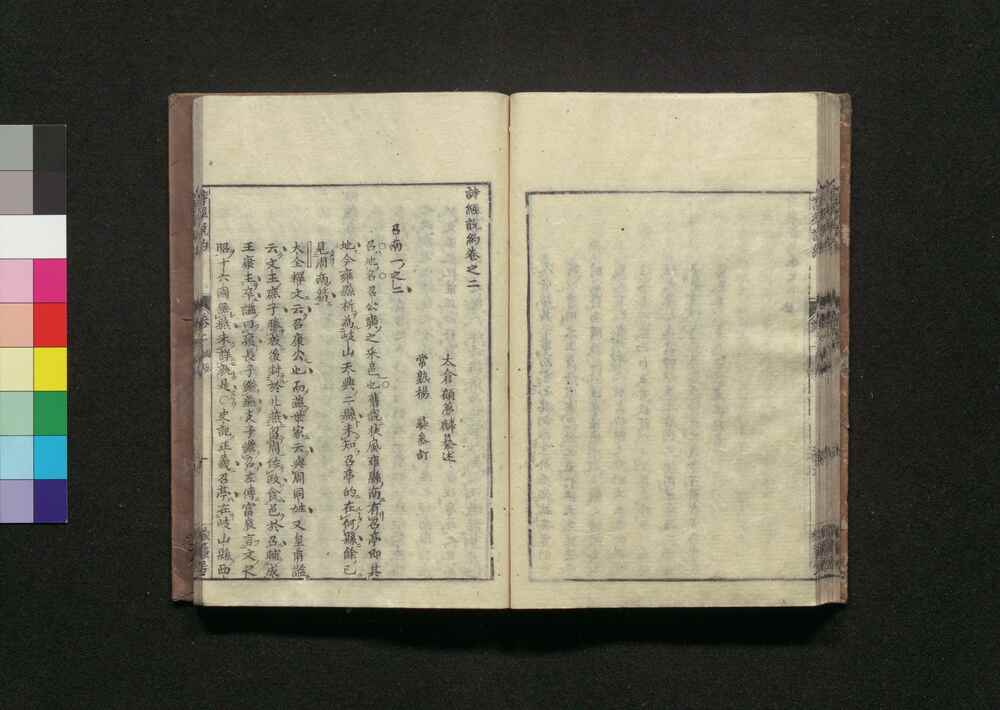 詩經說約卷之二
太倉顧夢麟纂述
常熟楊彝參訂
召南一之二
召地召公奭之采邑也舊說扶風雍縣南有召亭卽其
地今雍縣析為岐山天興二縣未知召亭的在何縣餘已
見周南篇
大全釋文云召康公也而燕世家云與周同姓又皇甫謐
云文王庶子勝殷後封於北燕留周佐政食邑於召輔成
王康王卒謚曰康長子繼燕支子繼召左傳富辰言文之
昭十六國無燕未詳孰是○史記正義召亭在岐山縣西